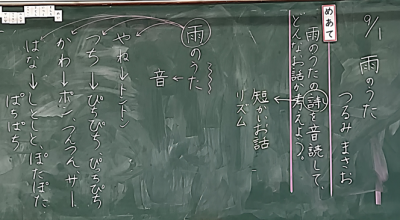 9/1 雨のうた
つるみ まさお
めあて
雨のうたの詩を音読して、
どんなお話か考えよう。
短かいお話
リズム
雨のうた
音
やね→トントン
つち→ぴちぴち ぴちぴち
かわ→ポン、つんつん、ザー
はな→しとしと、ぽたぽた
ぱちぱち